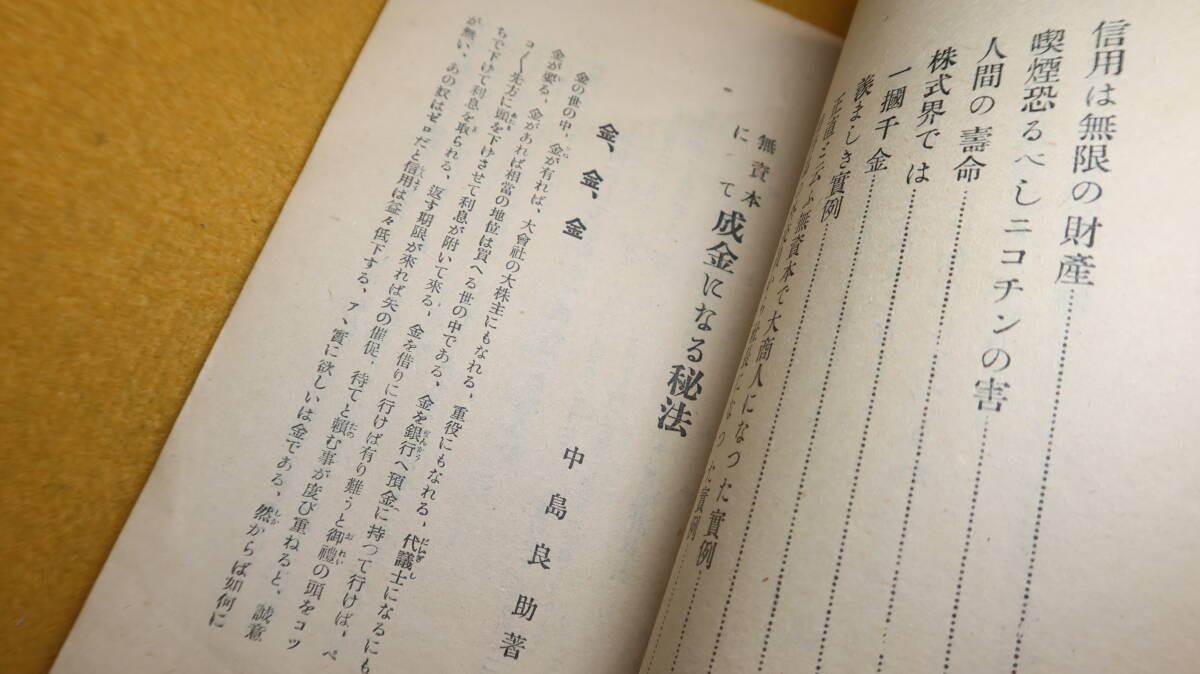 信用は無限の財產
喫煙恐るべしニコチンの害
人間の壽命
株式界では
一攫千金
羨ましき實例
正直と云ふ無資本で大商人になつた實例
社長になつた實例
無資本にて成金になる秘法
中島良助著
金、金、金
金の世の中、金が有れば、大會社の大株主にもなれる、重役にもなれる、代議士になるにも
金が要る、金があれば相當の地位は買へる世の中である、金を銀行へ預金に持つて行けば、ペ
コ〱先方に頭を下けさせて利息が附いて來る、金を借りに行けば有り難うと御禮の頭をコッ
ちで下けて利息を取られる、返す期限が來れば矢の催促、待てと賴む事が度び重ねると、誠意
が無い、あの奴はゼロだと信用は益々低下する、アヽ實に欲しいは金である、然からば如何に